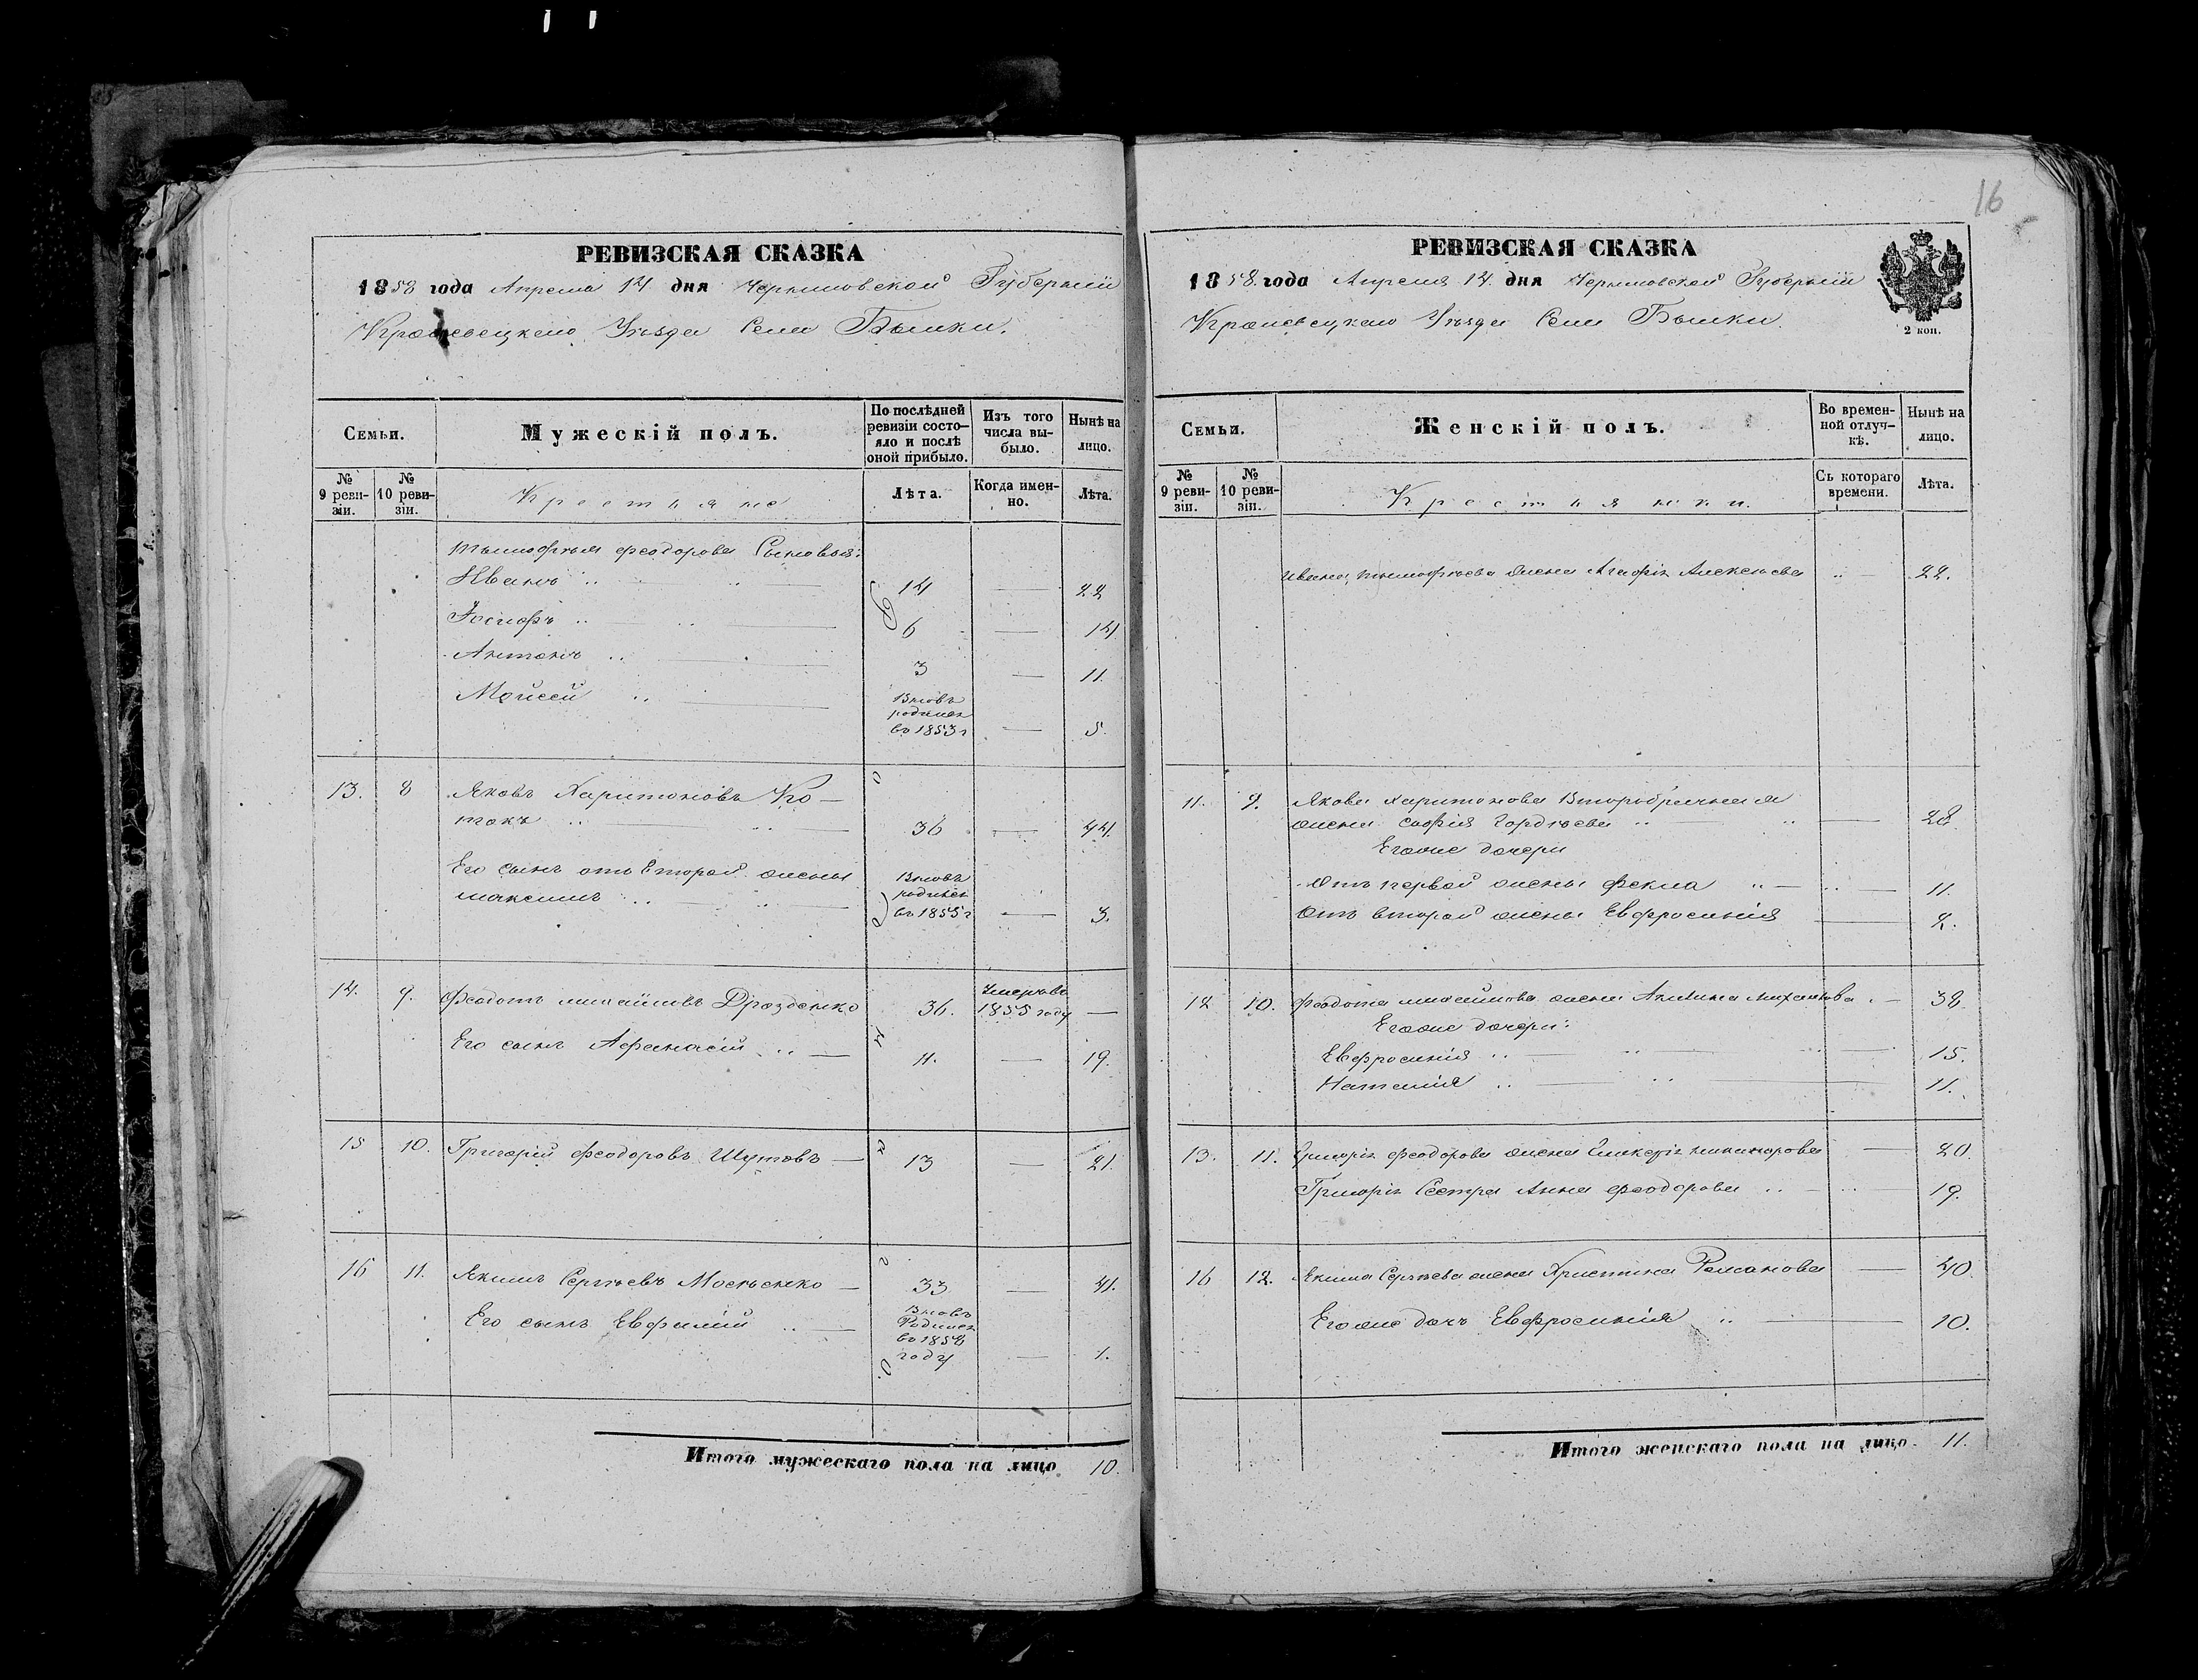 16
РЕВИЗСКАЯ СКАЗКА
1858 года Апреля 14 дня Черниговской Губерніи
Кролевецкаго Уѣзда Села Быики.
Семьи.
Мужескій полъ.
По послѣдней ревизіи состо-
яло и послѣ
оной прибыло.
Изъ того
числа вы-
было.
Нынѣ на
лицо.
№
9 реви-
зіи.
№
10 реви-
зіи.
Крестьяне
Лѣта.
Когда имен-
но.
Лѣта.
Тимофѣя Феодорова Сыновья:
Иванъ 14 — 22
Іосифъ 6 — 14
Антонъ 3 — 11.
Мойсей Вновь
родился
въ 1853 г — 5.
13. 8 Яковъ Харитоновъ Ко-
токъ 36 — 44.
Его сынъ отъ второй жены Вновь
максимъ родился
въ 1855 г — 3.
14. 9. Феодотъ Дрозденко 36. Умеръ въ
1855 году —
Его сынъ Афанасій 11. — 19.
15 10. Григорій Феодоровъ Шутовъ — 13 — 21.
16 11. Якимъ Сергѣевъ — 33 — 41.
Его сынъ Евфимій Вновь
Родился
въ 1858
году — 1.
Итого мужескаго пола на лицо 10.
РЕВИЗСКАЯ СКАЗКА
1858. года Апреля 14. дня Черниговской Губерніи
Кролевецкаго Уѣзда Села Быики.
2 коп.
Семьи.
Женскій полъ.
Во времен-
ной отлуч-
кѣ.
Нынѣ на
лицо.
№
9 реви-
зіи.
№
10 реви-
зіи.
Крестьянки.
Съ котораго
времени.
Лѣта.
Ивана Тимофѣева жена Агафія Алексѣева — 22.
11. 9. Якова Харитонова Второбрачная
жена Софія Гордѣева — 28.
Егоже дочери
Отъ первой жены Фекла — 11.
Отъ второй жены Евфросинія — 2.
12 10. Феодота жена Михайлова — 38
Егоже дочери:
Евфросинія — 15.
Наталія — 11.
13. 11. Григорія Феодорова жена Никифорова — 20.
Григорія Сестра Анна Феодорова — 19.
16 12. Якима Сергѣева жена Христина Романова — 40.
Егоже дочь Евфросинія — 10.
Итого женскаго пола на лицо. 11.